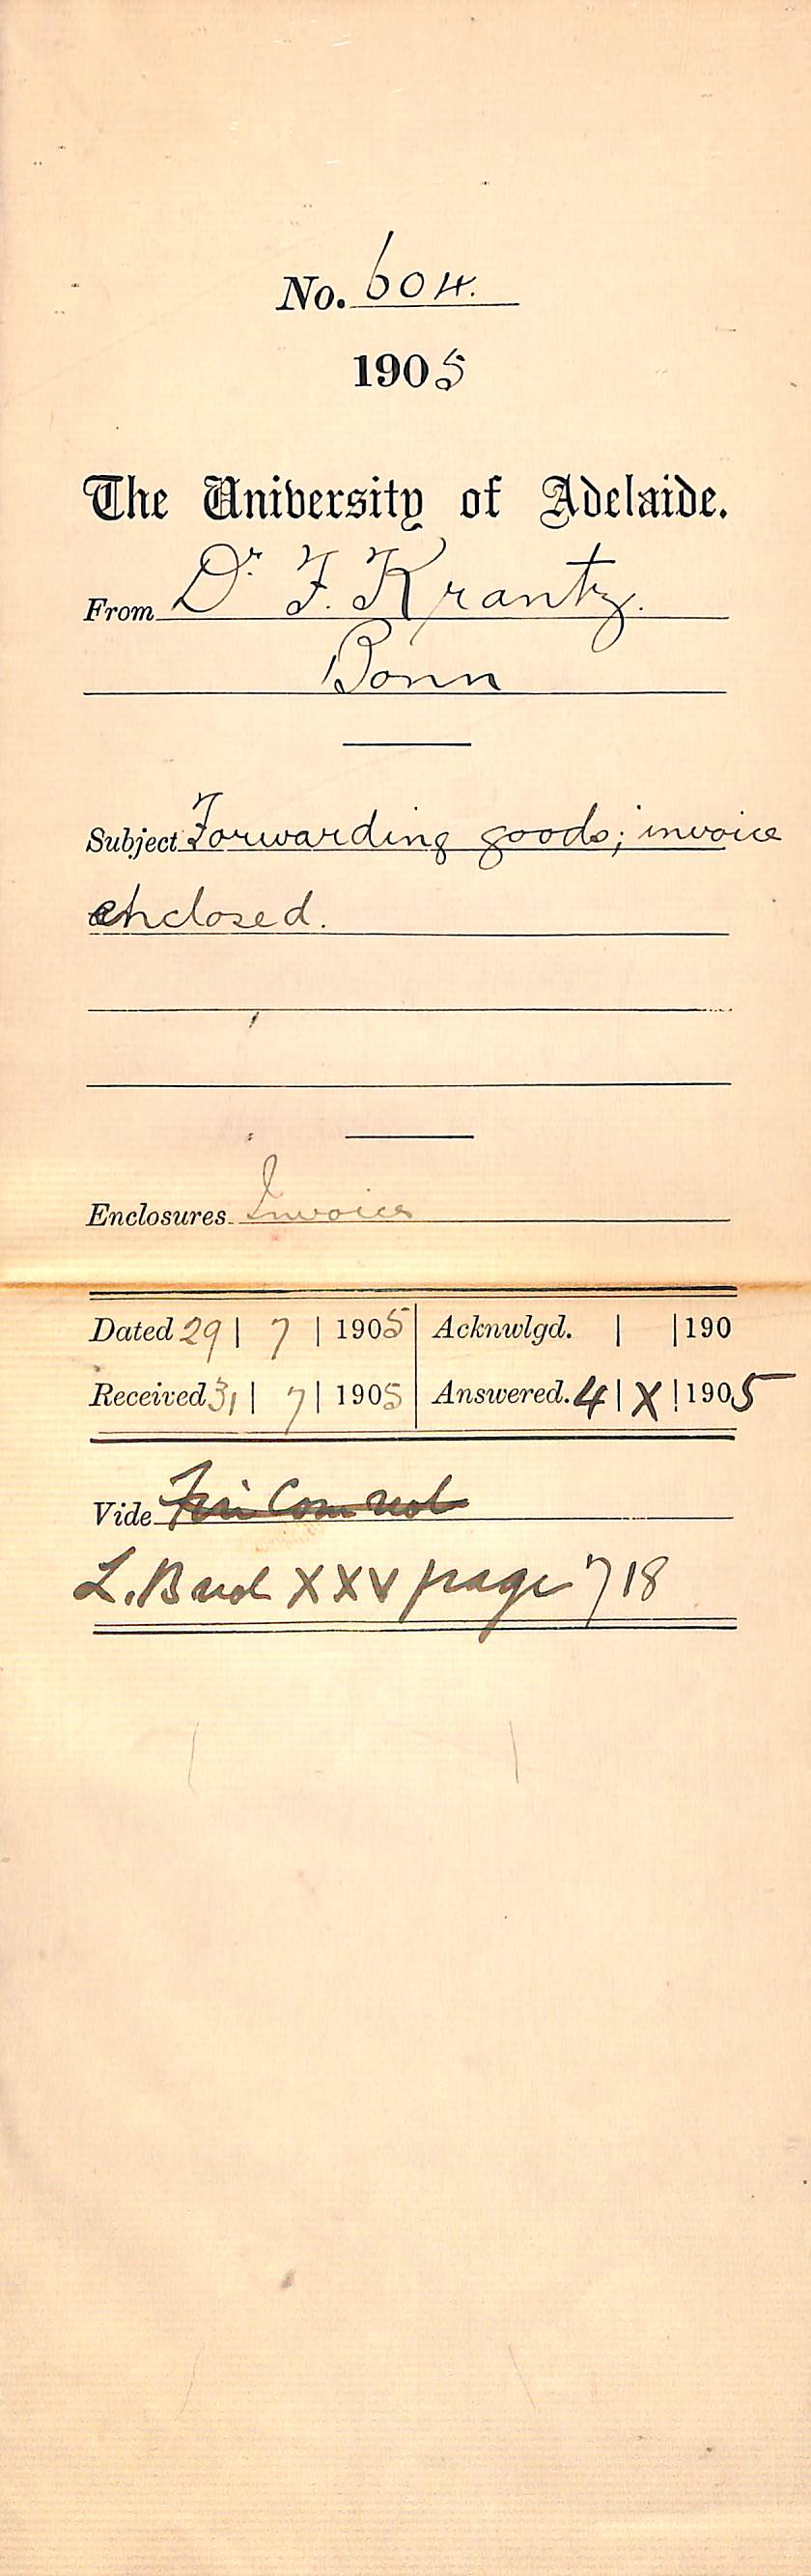 No. 604.
1905
The University of Adelaide.
From Dr. F. Krantz.
Bonn
Subject Forwarding goods; invoice
enclosed.
Enclosures. Invoice
Dated 29 | 7 | 1905 Acknwlgd. | | 190
Received 31 | 7 | 1905 Answered. 4 | X | 1905
Vide Fin Com
L. B XXV page 718